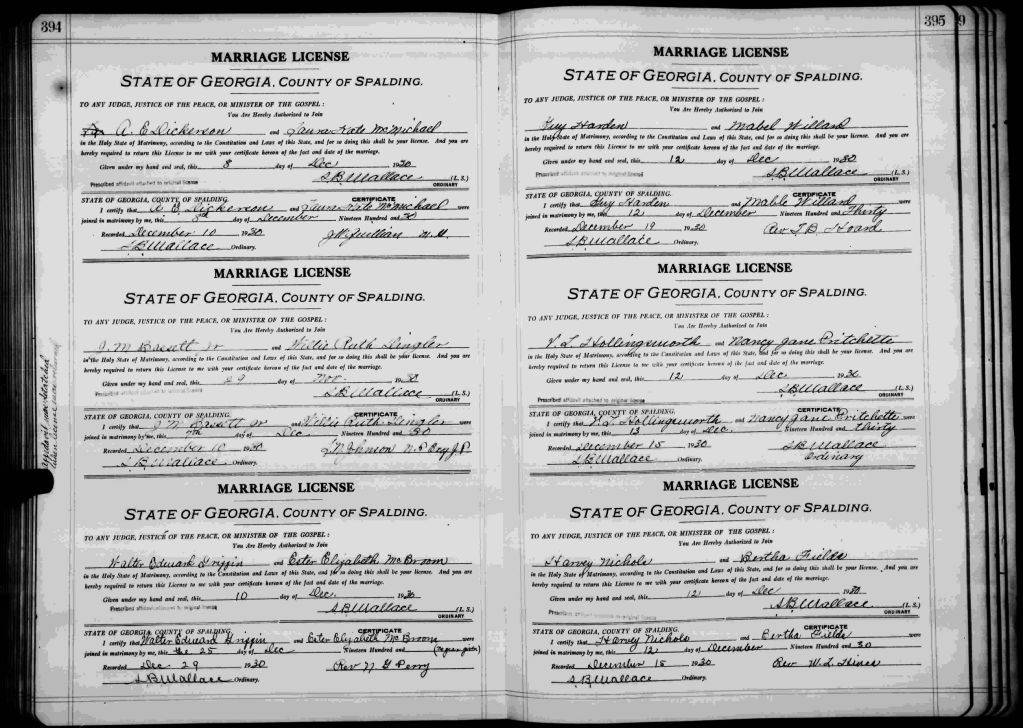 394
MARRIAGE LICENSE
STATE OF GEORGIA, COUNTY OF SPALDING.
TO ANY JUDGE, JUSTICE OF THE PEACE, OR MINISTER OF THE GOSPEL:
You Are Hereby Authorized to Join
A. E Dickerson and Laura Kate McMichael
in the Holy State of Matrimony, according to the Constitution and Laws of this State, and for so doing this shall be your license. And you are
hereby required to return this License to me with your certificate hereon of the fact and date of the marriage.
Given under my hand and seal, this 8 day of Dec 1930
S.B. Wallace (L. S.)
Prescribed affidavit attached to original license ORDINARY
STATE OF GEORGIA, COUNTY OF SPALDING. CERTIFICATE
I certify that A. E. Dickerson and Laura Kate McMichael were
joined in matrimony by me, this day of December Nineteen Hundred and 30
Recorded December 10 1930 J.W. Quillian M.G.
S.B. Wallace Ordinary.
MARRIAGE LICENSE
STATE OF GEORGIA, COUNTY OF SPALDING.
TO ANY JUDGE, JUSTICE OF THE PEACE, OR MINISTER OF THE GOSPEL:
You Are Hereby Authorized to Join
J. M Bassett Jr and Willie Ruth Lingler
in the Holy State of Matrimony, according to the Constitution and Laws of this State, and for so doing this shall be your license. And you are
hereby required to return this License to me with your certificate hereon of the fact and date of the marriage.
Given under my hand and seal, this 29 day of Nov 1930
Prescribed affidavit attached to original license S.B. Wallace (L. S.)
ORDINARY
STATE OF GEORGIA, COUNTY OF SPALDING. CERTIFICATE
I certify that J. M Bassett Jr and Willie Ruth Lingler were
joined in matrimony by me, this 7th day of Dec Nineteen Hundred and 30
Recorded December 10 1930 Johnson N.P. J.P.
S.B. Wallace Ordinary.
MARRIAGE LICENSE
STATE OF GEORGIA, COUNTY OF SPALDING.
TO ANY JUDGE, JUSTICE OF THE PEACE, OR MINISTER OF THE GOSPEL:
You Are Hereby Authorized to Join
Walter Edward Griffin and Ester Elizabeth McBroom
in the Holy State of Matrimony, according to the Constitution and Laws of this State, and for so doing this shall be your license. And you are
hereby required to return this License to me with your certificate hereon of the fact and date of the marriage.
Given under my hand and seal, this 10 day of Dec 1930
Prescribed affidavit attached to original license S.B. Wallace (L. S.)
ORDINARY
STATE OF GEORGIA, COUNTY OF SPALDING. CERTIFICATE
I certify that Walter Edward Griffin and Ester Elizabeth McBroom were
joined in matrimony by me, this 25 day of Dec Nineteen Hundred and
Recorded Dec 29 1930 Rev N G Perry
S.B. Wallace Ordinary.
395
9
MARRIAGE LICENSE
STATE OF GEORGIA, COUNTY OF SPALDING.
TO ANY JUDGE, JUSTICE OF THE PEACE, OR MINISTER OF THE GOSPEL:
You Are Hereby Authorized to Join
Guy Harden and Mabel Willard
in the Holy State of Matrimony, according to the Constitution and Laws of this State, and for so doing this shall be your license. And you are
hereby required to return this License to me with your certificate hereon of the fact and date of the marriage.
Given under my hand and seal, this 12 day of Dec 1930
Prescribed affidavit attached to original license S.B. Wallace (L. S.)
ORDINARY
STATE OF GEORGIA, COUNTY OF SPALDING. CERTIFICATE
I certify that Guy Harden and Mable Willard were
joined in matrimony by me, this 12 day of December Nineteen Hundred and Thirty
Recorded December 19 1930 Rev T. B. Hoard
S.B. Wallace Ordinary.
MARRIAGE LICENSE
STATE OF GEORGIA, COUNTY OF SPALDING.
TO ANY JUDGE, JUSTICE OF THE PEACE, OR MINISTER OF THE GOSPEL:
You Are Hereby Authorized to Join
V. L. Hollingsworth and Nancy Jane Pritchette
in the Holy State of Matrimony, according to the Constitution and Laws of this State, and for so doing this shall be your license. And you are
hereby required to return this License to me with your certificate hereon of the fact and date of the marriage.
Given under my hand and seal, this 12 day of Dec 1930
Prescribed affidavit attached to original license S.B. Wallace (L. S.)
ORDINARY
STATE OF GEORGIA, COUNTY OF SPALDING. CERTIFICATE
I certify that V. L. Hollingsworth and Nancy Jane Pritchette were
joined in matrimony by me, this 13 day of Dec. Nineteen Hundred and Thirty
Recorded December 15 1930 S.B. Wallace
S.B. Wallace Ordinary. Ordinary
MARRIAGE LICENSE
STATE OF GEORGIA, COUNTY OF SPALDING.
TO ANY JUDGE, JUSTICE OF THE PEACE, OR MINISTER OF THE GOSPEL:
You Are Hereby Authorized to Join
Harvey Nichols and Bertha Fields
in the Holy State of Matrimony, according to the Constitution and Laws of this State, and for so doing this shall be your license. And you are
hereby required to return this License to me with your certificate hereon of the fact and date of the marriage.
Given under my hand and seal, this 12 day of Dec 1930
Prescribed affidavit attached to original license S.B. Wallace (L. S.)
ORDINARY
STATE OF GEORGIA, COUNTY OF SPALDING. CERTIFICATE
I certify that Harvey Nichols and Bertha Fields were
joined in matrimony by me, this 12 day of December Nineteen Hundred and 30
Recorded December 15 1930 Rev W. L. Hines
S.B. Wallace Ordinary.